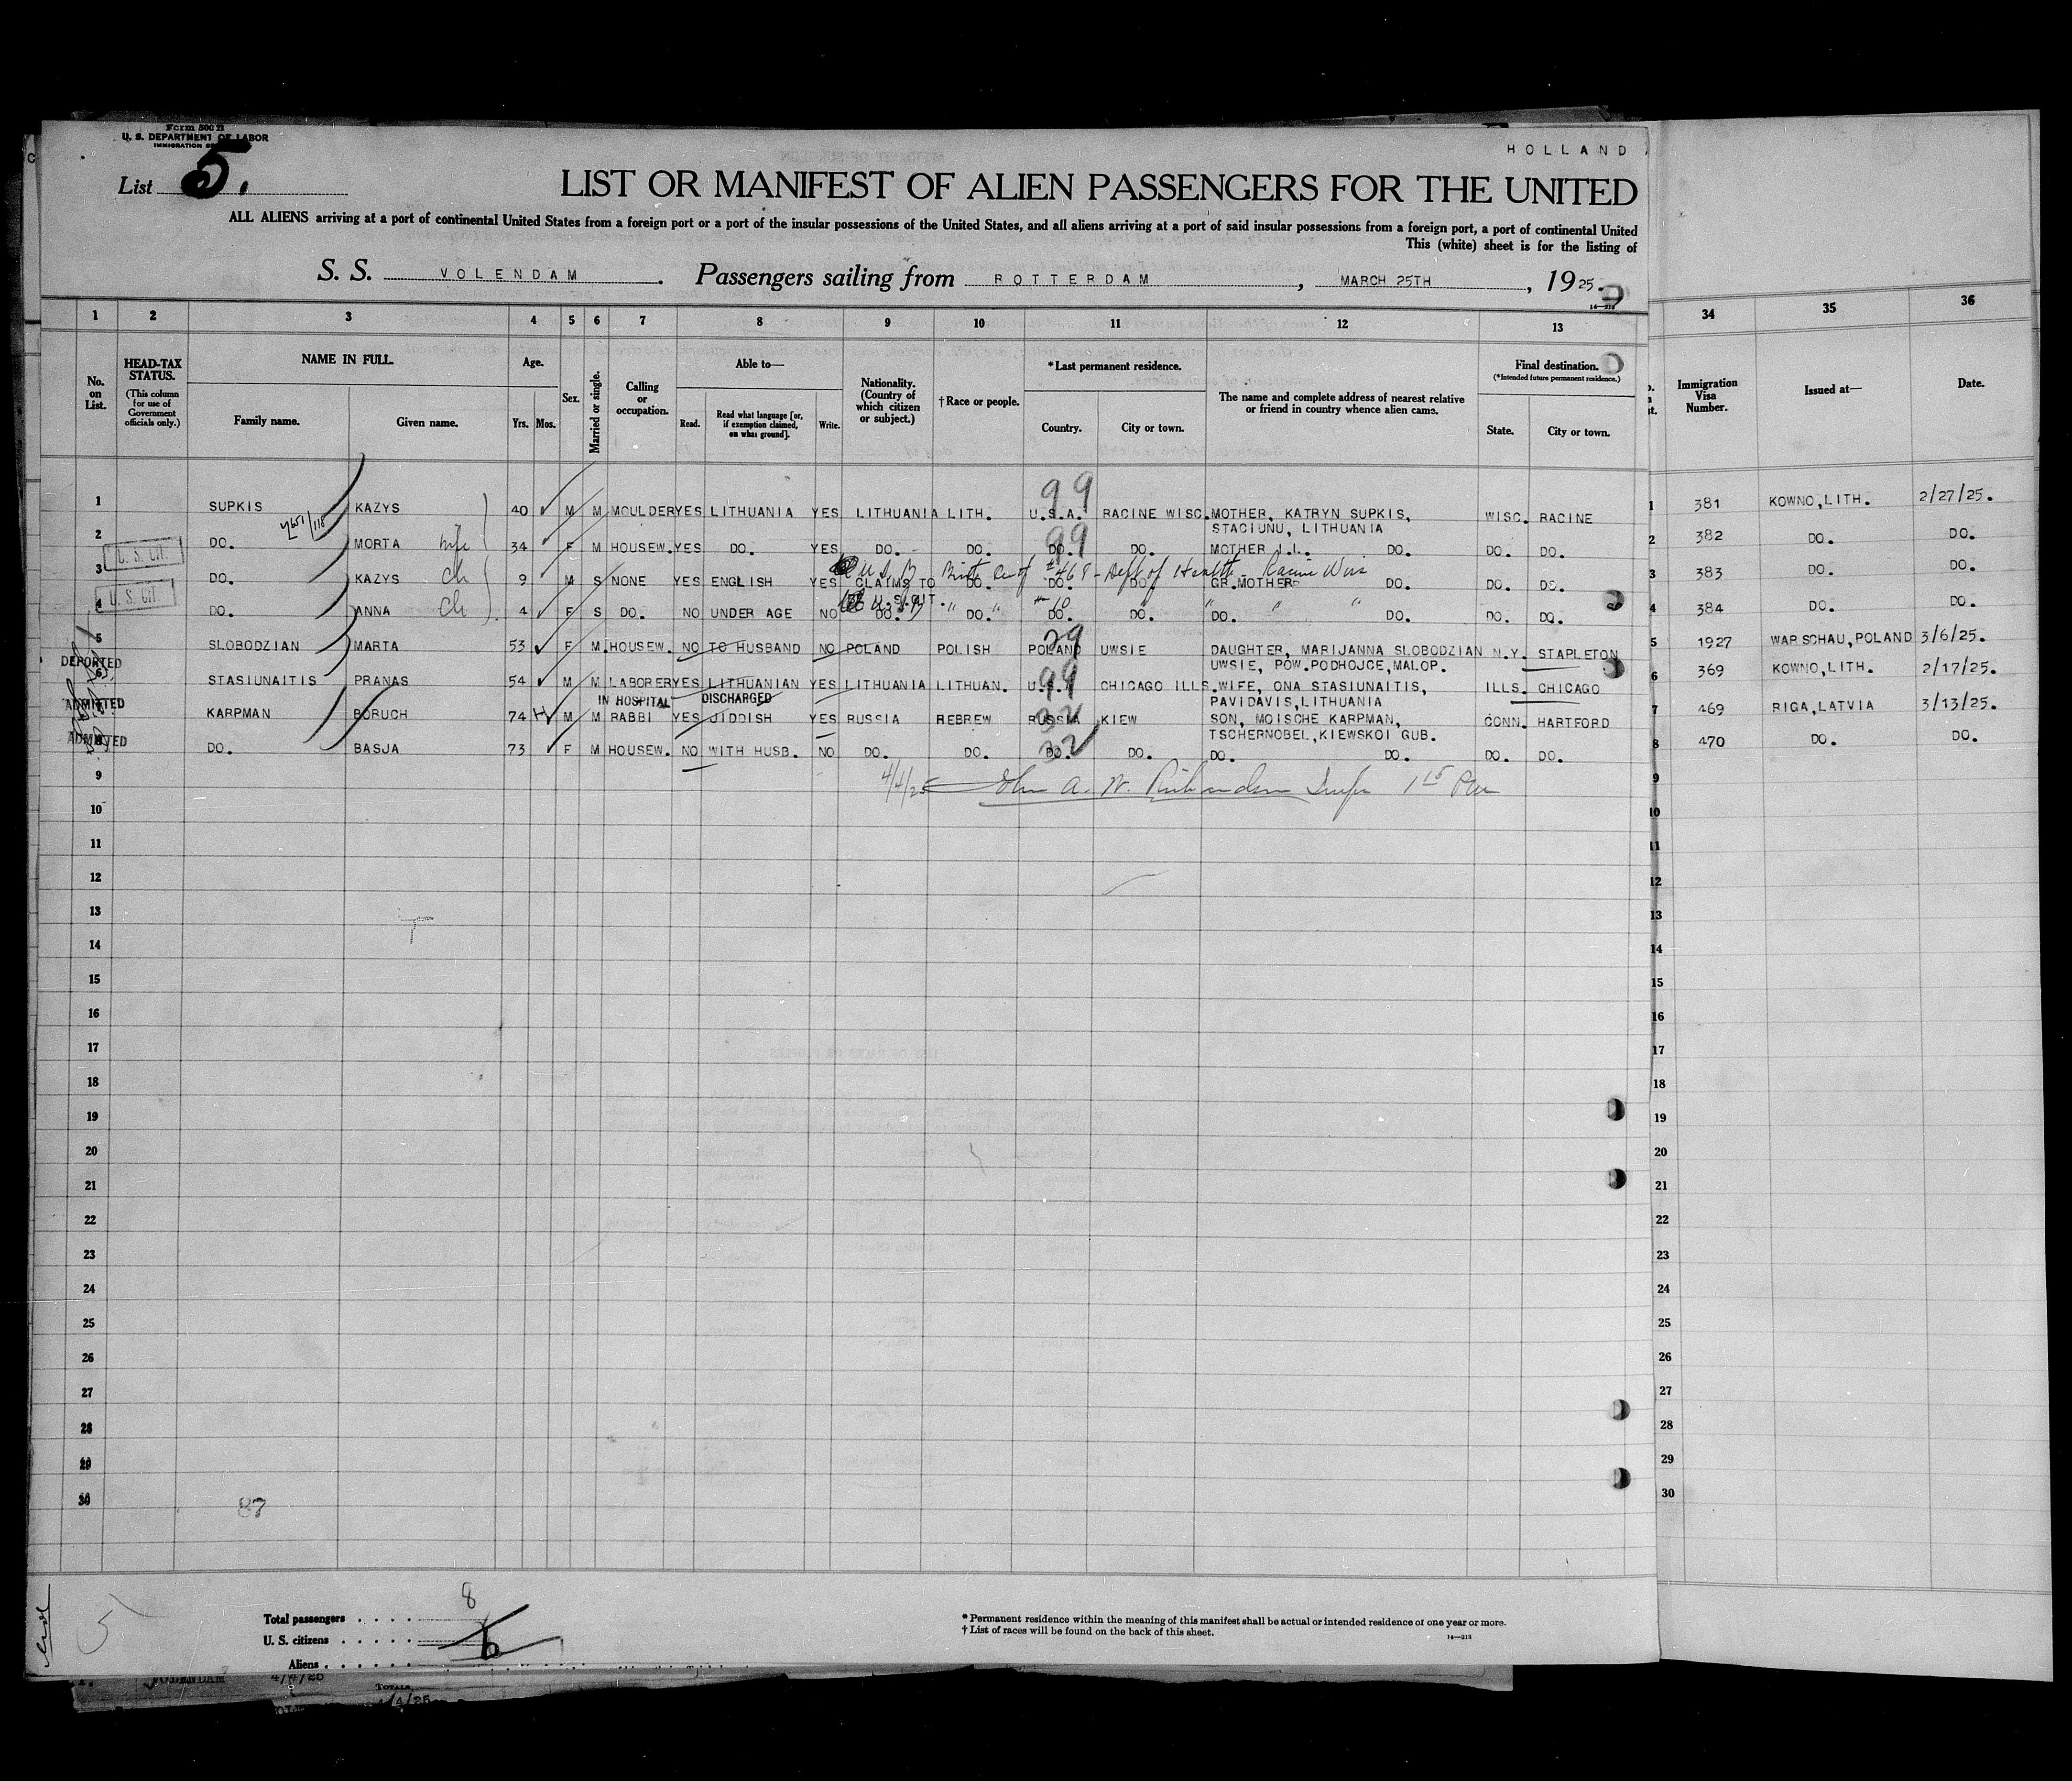 Form 500 B
U. S. DEPARTMENT OF LABOR
IMMIGRATION
HOLLAND
List 5.
LIST OR MANIFEST OF ALIEN PASSENGERS FOR THE UNITED
ALL ALIENS arriving at a port of continental United States from a foreign port or a port of the insular possessions of the United States, and all aliens arriving at a port of said insular possessions from a foreign port, a port of continental United
This (white) sheet is for the listing of
S. S. VOLENDAM. Passengers sailing from ROTTERDAM, MARCH 25TH, 1925.
14—213
1 2 3 4 5 6 7 8 9 10 11 12 13 34 35 36
No. on List.
HEAD-TAX STATUS.
(This column for use of Government officials only.)
NAME IN FULL.
Family name. Given name.
Age.
Yrs. Mos.
Sex.
Married or single.
Calling or occupation.
Able to—
Read. Read what language [or, if exemption claimed, on what ground]. Write.
Nationality. (Country of which citizen or subject.)
†Race or people.
*Last permanent residence.
Country. City or town.
The name and complete address of nearest relative or friend in country whence alien came.
Final destination.
(*Intended future permanent residence.)
State. City or town.
Immigration Visa Number.
Issued at—
Date.
99
1 SUPKIS KAZYS 40 M M MOULDER YES LITHUANIA YES LITHUANIA LITH. U.S.A. RACINE WISC. MOTHER, KATRYN SUPKIS, WISC. RACINE 1 381 KOWNO, LITH. 2/27/25.
STACIUNU, LITHUANIA
99
2 DO. MORTA wife 34 F M HOUSEW. YES DO. YES DO. DO. DO. DO. MOTHER I.L. DO. DO. DO. 2 382 DO. DO.
U. S. CIT.
U.S.B Birth Cert #468 - Dept of Health Racine Wis
3 DO. KAZYS Ch 9 M S NONE YES ENGLISH YES CLAIMS TO DO. DO. DO. GR.MOTHER DO. DO. DO. 3 383 DO. DO.
U. S. CIT.
U.S.CIT. " " # 10 " " "
4 DO. ANNA Ch 4 F S DO. NO UNDER AGE NO DO. DO. DO. DO. DO. DO. DO. DO. 4 384 DO. DO.
29
5 SLOBODZIAN MARTA 53 F M HOUSEW. NO TO HUSBAND NO POLAND POLISH POLAND UWSIE DAUGHTER, MARIJANNA SLOBODZIAN N.Y. STAPLETON 5 1927 WARSCHAU, POLAND 3/6/25.
DEPORTED
UWSIE, POW.PODHOJCE, MALOP.
99
6 STASIUNAITIS PRANAS 54 M M LABORER YES LITHUANIAN YES LITHUANIA LITHUAN. U.S.A CHICAGO ILLS. WIFE, ONA STASIUNAITIS, ILLS. CHICAGO 6 369 KOWNO, LITH. 2/17/25.
ADMITTED
IN HOSPITAL DISCHARGED
PAVIDAVIS, LITHUANIA
32
7 KARPMAN BORUCH 74 H M M RABBI YES JIDDISH YES RUSSIA HEBREW RUSSIA KIEW SON, MOISCHE KARPMAN, CONN. HARTFORD 7 469 RIGA, LATVIA 3/13/25.
ADMITTED
TSCHERNOBEL, KIEWSKOI GUB.
32
8 DO. BASJA 73 F M HOUSEW. NO WITH HUSB. NO DO. DO. DO. DO. DO. DO. DO. DO. 8 470 DO. DO.
9 4/4/25 John A. W. Richardson 9
10 10
11 11
12 12
13 13
14 14
15 15
16 16
17 17
18 18
19 19
20 20
21 21
22 22
23 23
24 24
25 25
26 26
27 27
28 28
29 29
30 30
87
5
Total passengers . . . . 8
U. S. citizens . . . . .
Aliens . . . . . . 6
* Permanent residence within the meaning of this manifest shall be actual or intended residence of one year or more.
† List of races will be found on the back of this sheet.
14—213
VOLENDAM 4/4/25
TOTALS
4/4/25